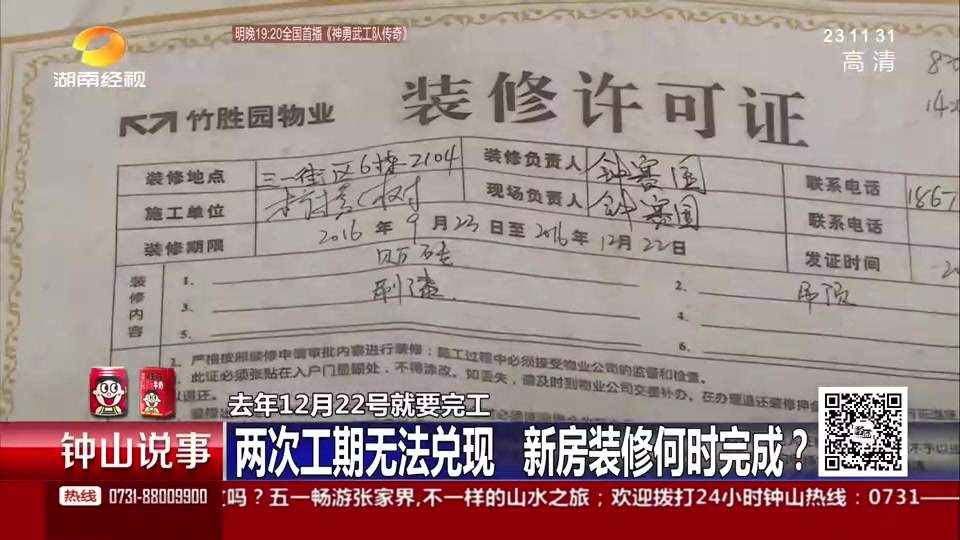 明晚19:20全国首播《神勇武工队传奇》
23 11 31
高清
湖南经视
竹胜园物业
装修许可证
装修地点 三一街区6栋-2104 装修负责人 钟赛国 联系电话 1867
施工单位 现场负责人 钟赛国 联系电话
装修期限 2016年9月23日至2016年12月22日 发证时间
装修内容 1. 贴砖 2. 吊顶
3. 刷漆 4.
5. 6.
1、严格按照装修申请审批内容进行装修；施工过程中必须接受物业公司的监督和检查。
此证必须张贴在入户门显眼处，不得涂改。如丢失，请及时到物业公司交差补办。在办理退还装修押金
去年12月22号就要完工
钟山说事
两次工期无法兑现 新房装修何时完成？
热线 0731-88009900
吗？五一畅游张家界,不一样的山水之旅；欢迎拨打24小时钟山热线：0731—